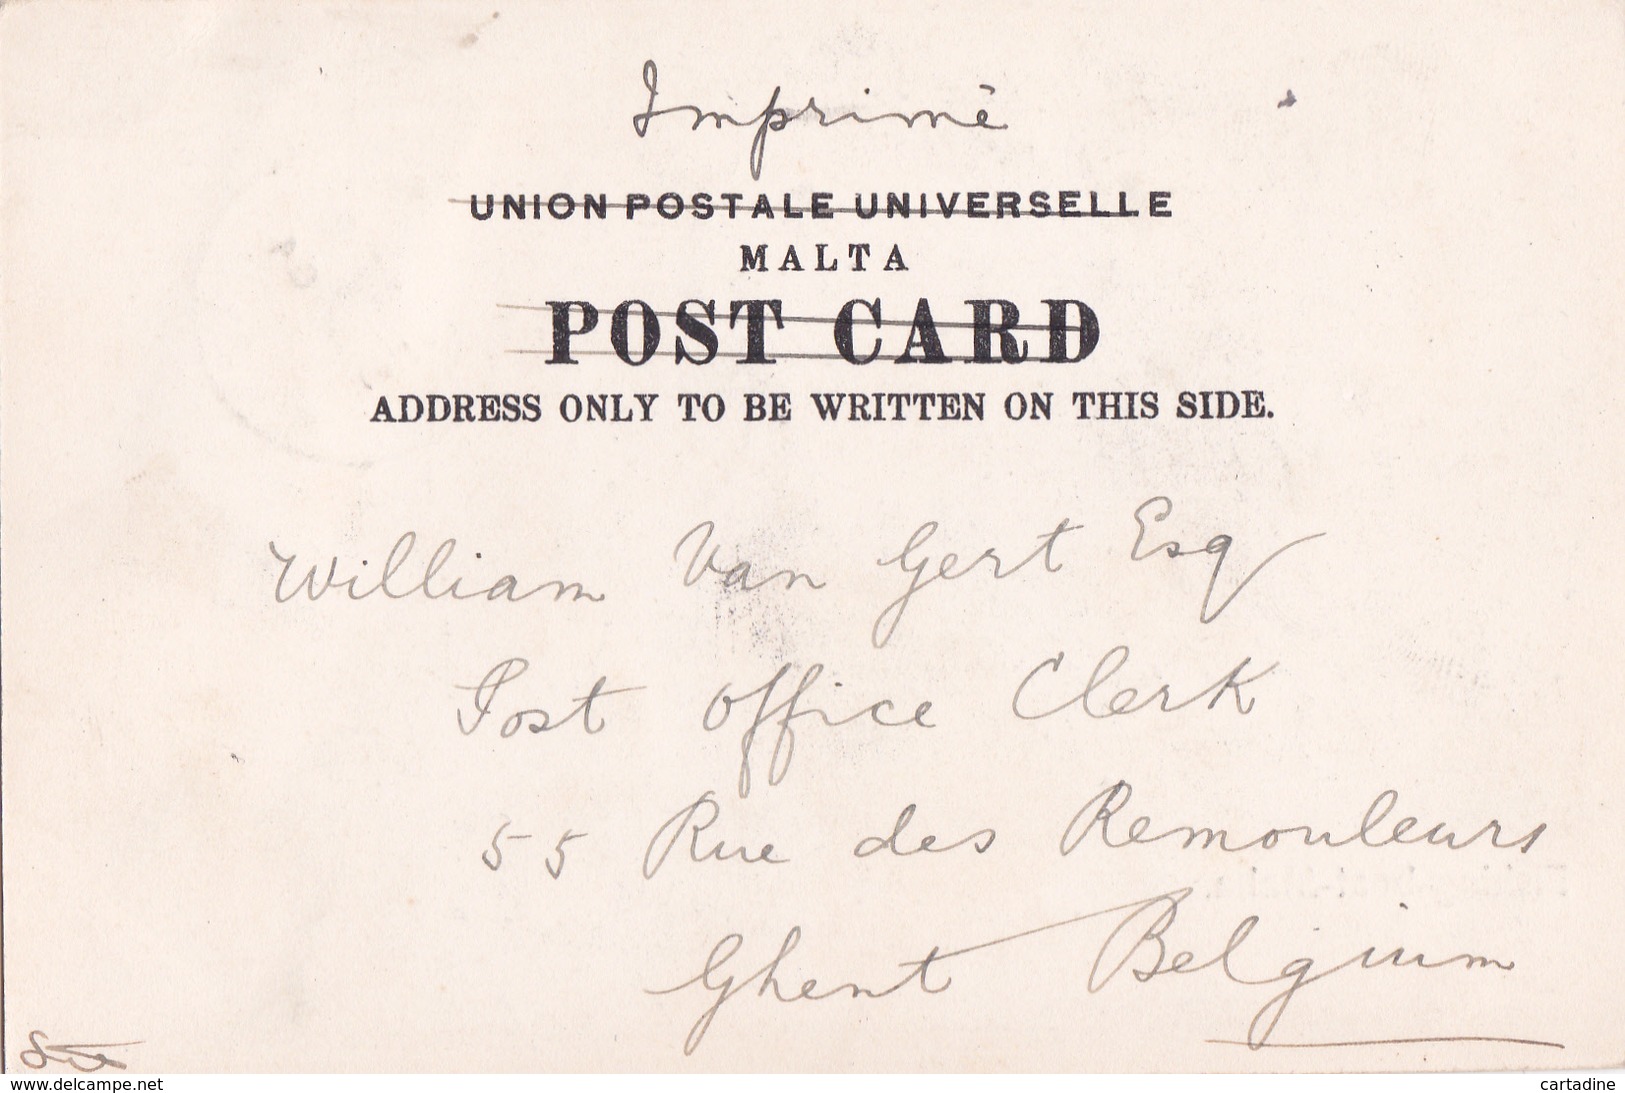 Imprimé
UNION POSTALE UNIVERSELLE
MALTA
POST CARD
ADDRESS ONLY TO BE WRITTEN ON THIS SIDE.
William Van Gert Esq
Post Office Clerk
55 Rue des Remouleurs
Ghent Belgium
www.delcampe.net
cartadine